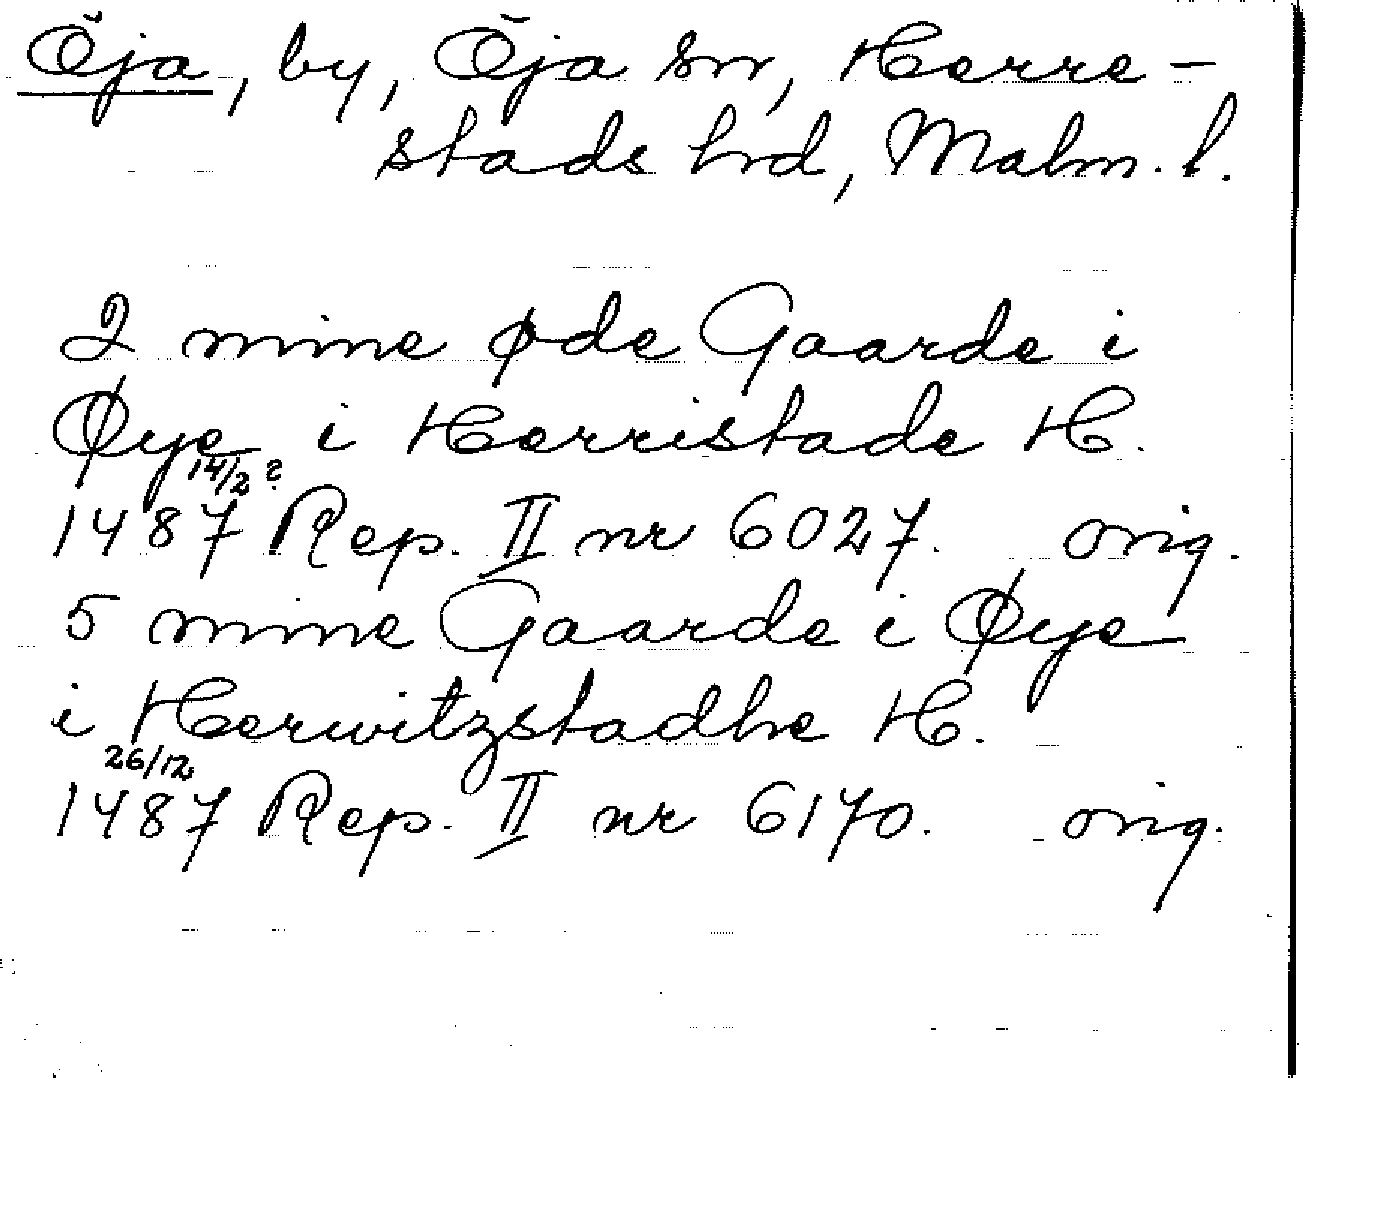 Öja, by, Öja sn, Herre-
stads hrd, Malm. l.
2 mine øde Gaarde i
Øye i Herristade H.
14/2 ?
1487 Rep. II nr 6027. orig.
5 mine Gaarde i Øye
i Herwitzstadhe H.
26/12
1487 Rep. II nr 6170. orig.